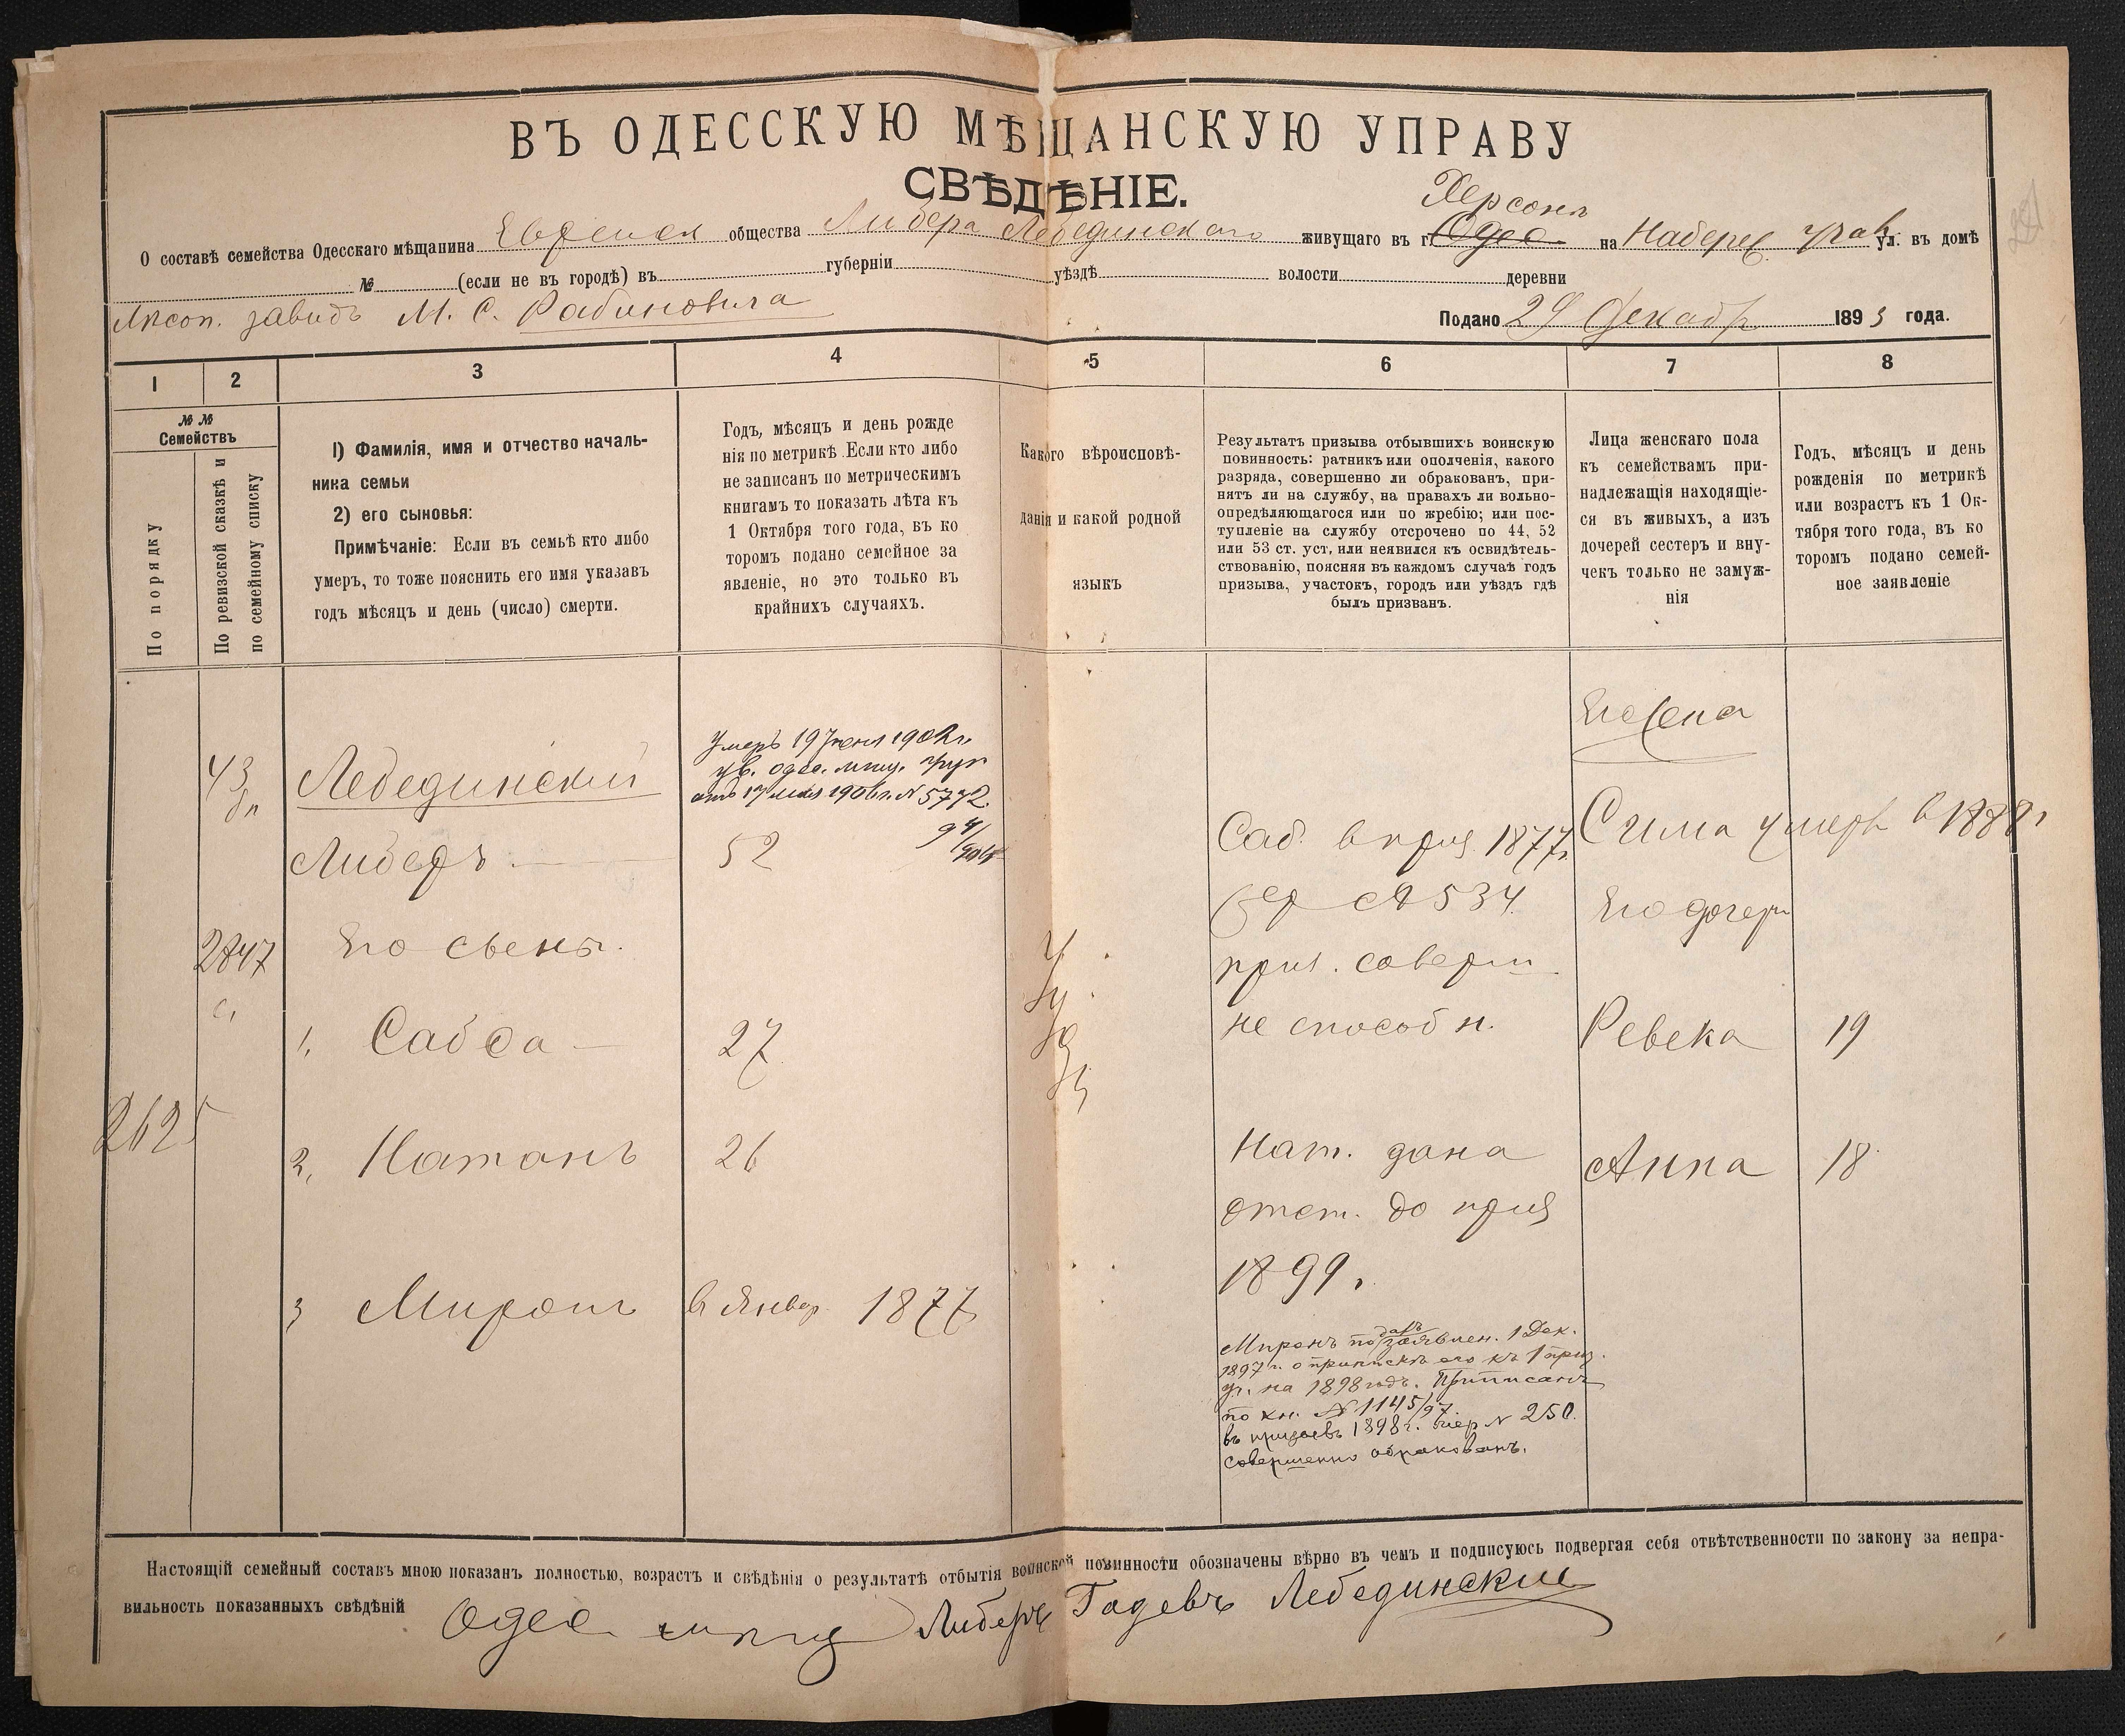 ВЪ ОДЕССКУЮ МѢЩАНСКУЮ УПРАВУ
СВѢДѢНІЕ.
Херсонъ
О составѣ семейства Одесскаго мѣщанина Еврейск общества Либера Лебединскаго живущаго въ г. Одес. на Наберез. ул. въ домѣ
№ (если не въ городѣ) въ губерніи уѣздѣ волости деревни
завидъ М. С. Рабиновича
Подано 29 Декабр 1893 года.
1 2 3 4 5 6 7 8
№ №
Семействъ
По порядку
По ревизской сказкѣ и
по семейному списку
1) Фамилія, имя и отчество началь-
ника семьи
2) его сыновья:
Примѣчаніе: Если въ семьѣ кто либо
умеръ, то тоже пояснить его имя указавъ
годъ мѣсяцъ и день (число) смерти.
Годъ, мѣсяцъ и день рожде
нія по метрикѣ. Если кто либо
не записанъ по метрическимъ
книгамъ то показать лѣта къ
1 Октября того года, въ ко
торомъ подано семейное за
явленіе, но это только въ
крайнихъ случаяхъ.
Какого вѣроисповѣ-
данія и какой родной
языкъ
Результатъ призыва отбывшихъ воинскую
повинность: ратникъ или ополченія, какого
разряда, совершенно ли обракованъ, при-
нятъ ли на службу, на правахъ ли вольно-
опредѣляющагося или по жребію; или пос-
тупленіе на службу отсрочено по 44, 52
или 53 ст. уст, или неявился къ освидѣтель-
ствованію, поясняя въ каждомъ случаѣ годъ
призыва, участокъ, городъ или уѣздъ гдѣ
былъ призванъ.
Лица женскаго пола
къ семействамъ при-
надлежащія находящіе-
ся въ живыхъ, а изъ
дочерей сестеръ и вну-
чекъ только не замуж-
нія
Годъ, мѣсяцъ и день
рожденія по метрикѣ
или возрастъ къ 1 Ок-
тября того года, въ ко
торомъ подано семей-
ное заявленіе
Его жена
43 Лебединскій
Умеръ 19 Іюня 1902 г.
ув. одес. мѣщ.
отъ 17 мая 1906 г. № 5772.
Либеръ 52
Саб. в приз 1877 г.
Сима умерл в 1888 г
жер № 534.
Его дочери
2847 Его сыны.
приз. соверш
1. Сабса 27
не способн.
Ревека 19
2625
2. Натанъ 26
Нат. дана
Анна 18
отст. до приз
1899 г.
3 Миронъ в Январ. 1877
Миронъ подалъ заявлен. 1 Дек.
1897 г. о припискѣ его къ 1 приз.
уч. на 1898 годъ. Приписанъ
по кн. № 1145/97
въ призывъ 1898 г. жер № 250.
совершенно обракованъ.
Настоящій семейный составъ мною показанъ полностью, возрастъ и свѣдѣнія о результатѣ отбытія воинской повинности обозначены вѣрно въ чемъ и подписуюсь подвергая себя отвѣтственности по закону за непра-
вильность показанныхъ свѣдѣній
Одес Либеръ Гадевъ Лебединскій